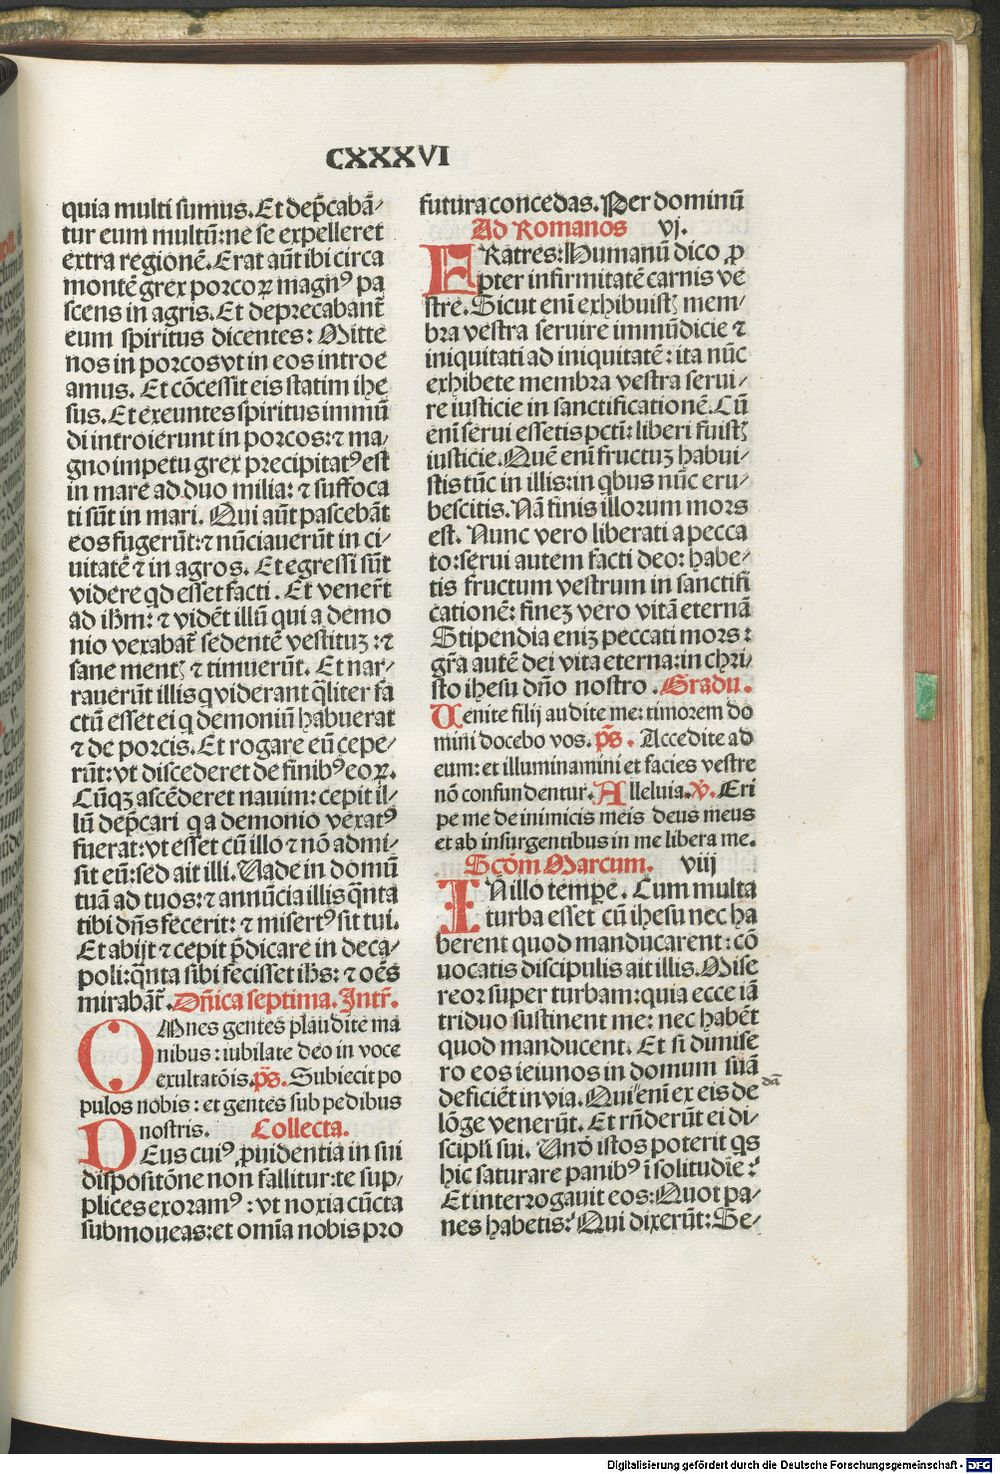 CXXXVI
quia multi sumus. Et dep̄cabā⸗
tur eum multū: ne se expelleret
extra regionē. Erat aūt ibi circa
montē grex porcoꝝ magnꝰ pa
scens in agris. Et deprecabant̄
eum spiritus dicentes: Mitte
nos in porcos vt in eos introe
amus. Et cōcessit eis statim ihe
sus. Et exeuntes spiritus immū
di introierunt in porcos: ⁊ ma⸗
gno impetu grex precipitatꝰ est
in mare ad duo milia: ⁊ suffoca
ti sūt in mari. Qui aūt pascebāt
eos fugerūt: ⁊ nūciauerūt in ci⸗
uitatē ⁊ in agros. Et egressi sūt
videre qd esset facti. Et venert̄
ad ihm̄: ⁊ vidēt illū qui a demo
nio vexabat̄ sedentē vestituꝫ: ⁊
sane mentꝭ ⁊ timuerūt. Et nar⸗
rauerūt illis q viderant q̄liter fa
ctū esset ei q demoniū habuerat
⁊ de porcis. Et rogare eū cepe⸗
rūt: vt discederet de finibꝰ eoꝝ.
Cūqꝫ ascēderet nauim: cepit il⸗
lū dep̄cari q a demonio vexatꝰ
fuerat: vt esset cū illo ⁊ nō admi⸗
sit eū: sed ait illi. Vade in domū
tuā ad tuos: ⁊ annūcia illis q̄nta
tibi dn̄s fecerit: ⁊ misertꝰ sit tui.
Et abijt ⁊ cepit p̄dicare in deca⸗
poli: q̄nta sibi fecisset ihs̄: ⁊ oēs
mirabāt̄. Dn̄ica septima. Intr̄.
OMnes gentes plaudite ma
nibus: iubilate deo in voce
exultatōis. p̄s. Subiecit po
pulos nobis: et gentes sub pedibus
nostris. Collecta.
DEus cuiꝰ ꝓuidentia in sui
dispositōne non fallitur: te sup⸗
plices exoramꝰ: vt noxia cūcta
submoueas: et omīa nobis pro
futura concedas. Per dominū
Ad Romanos vj.
FRatres: Humanū dico ꝓ
pter infirmitatē carnis ve
stre. Sicut enī exhibuistꝭ mem⸗
bra vestra seruire immūdicie ⁊
iniquitati ad iniquitatē: ita nūc
exhibete membra vestra serui⸗
re iusticie in sanctificationē. Cū
enī serui essetis pctī: liberi fuistꝭ
iusticie. Quē enī fructuꝫ habui⸗
stis tūc in illis: in qbus nūc eru⸗
bescitis. Nā finis illorum mors
est. Nunc vero liberati a pecca
to: serui autem facti deo: habe⸗
tis fructum vestrum in sanctifi
cationē: fineꝫ vero vitā eternā
Stipendia eniꝫ peccati mors:
gr̄a autē dei vita eterna: in chri⸗
sto ihesu dn̄o nostro. Gradu.
Venite filij audite me: timorem do
mini docebo vos. p̄s. Accedite ad
eum: et illuminamini et facies vestre
nō confundentur. Alleluia. v̄. Eri
pe me de inimicis meis deus meus
et ab insurgentibus in me libera me.
Scd̄m Marcum. viij
IN illo tempē. Cum multa
turba esset cū ihesu nec ha
berent quod manducarent: cō
uocatis discipulis ait illis. Mise
reor super turbam: quia ecce iā
triduo sustinent me: nec habēt
quod manducent. Et si dimise
ro eos ieiunos in domum suā
deficiēt in via. Qui enī ex eis de
dā
lōge venerūt. Et rn̄derūt ei di⸗
scipli sui. Vnd̄ istos poterit qs
hic saturare panibꝰ ī solitudīe:
Et interrogauit eos: Quot pa⸗
nes habetis: Qui dixerūt: Se⸗
Digitalisierung gefördert durch die Deutsche Forschungsgemeinschaft - DFG